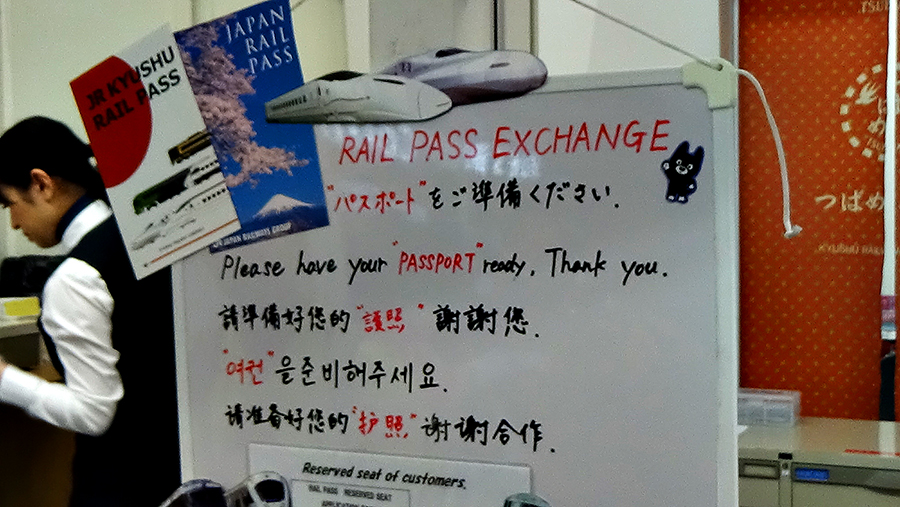 JR KYUSHU
RAIL PASS
JAPAN
RAIL
PASS
JAPAN RAILWAYS GROUP
RAIL PASS EXCHANGE
"パスポート"をご準備ください.
Please have your "PASSPORT" ready. Thank you.
請準備好您的"護照" 謝謝您.
"여권"을준비해주세요.
请准备好您的"护照"谢谢合作.
Reserved seat of customers.
RAIL PASS RESERVED SEAT
つばめ
KYUSHU RAIL